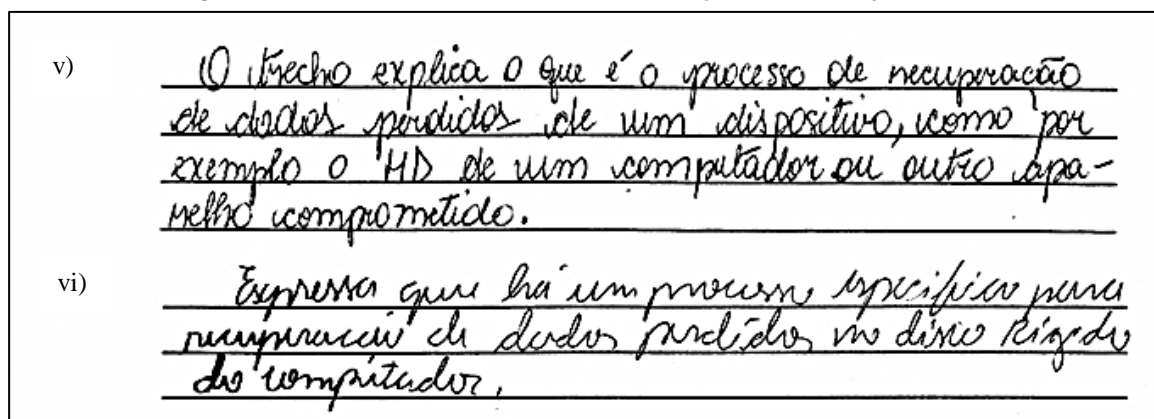 v) O trecho explica o que é o processo de recuperação
de dados perdidos de um dispositivo, como por
exemplo o HD de um computador ou outro apa-
relho comprometido.
vi) Expressa que há um processo específico para
recuperação de dados perdidos no disco rígido
do computador.